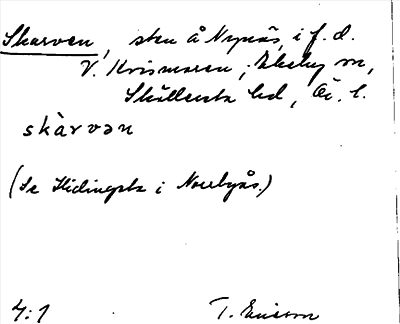 Skarven, sten å Nynäs, i f. d.
V. Kvismaren, Ekeby sn,
Sköllersta hd, Ör. l.
skàrvən
(Se Hidingsta i Norrbyås.)
4:1 T. Ericson